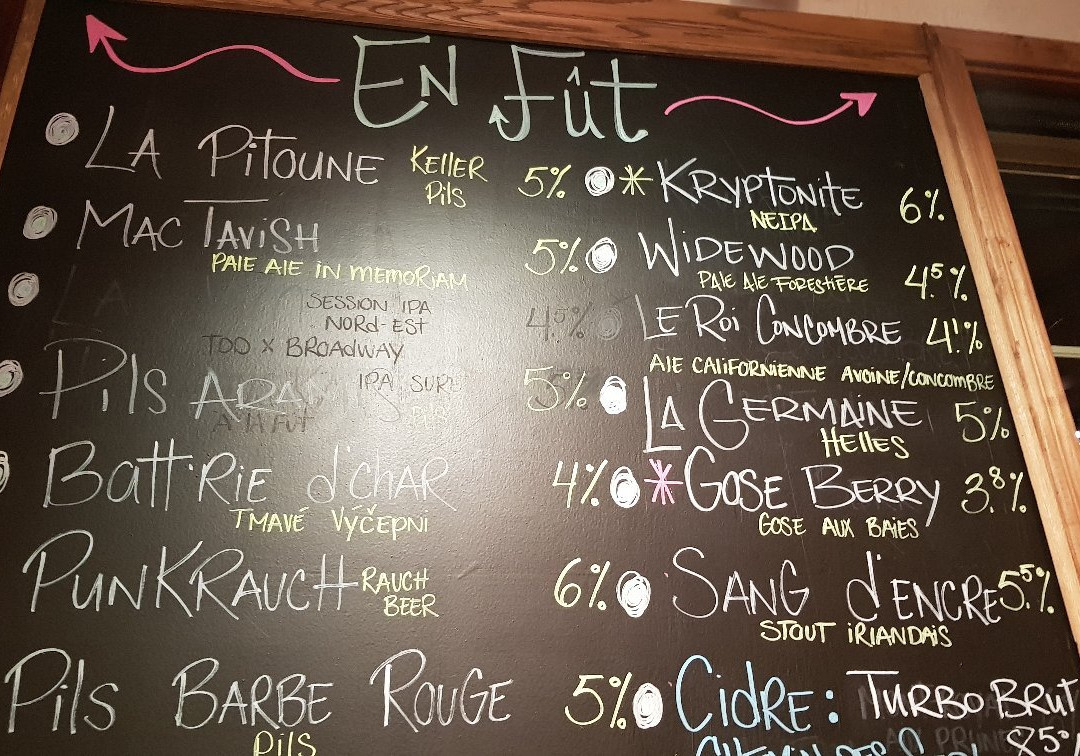 En Fût
La Pitoune Keller
Pils 5%
MacTavish 5%
Pale Ale in Memoriam
Session IPA
Nord-Est 4.5%
Too x Broadway
Pils 5%
IPA Sure
à la fût
Batt'Rie d'char 4%
Tmavé Výčepni
PunkRauch Rauch
Beer 6%
Pils Barbe Rouge 5%
Pils
* Kryptonite 6%
NEIPA
Widewood 4.5%
Pale Ale Forestière
Le Roi Concombre 4.1%
Ale Californienne Avoine/Concombre
La Germaine 5%
Helles
* Gose Berry 3.8%
Gose aux Baies
Sang d'encre 5.5%
Stout Irlandais
Cidre: Turbo Brut